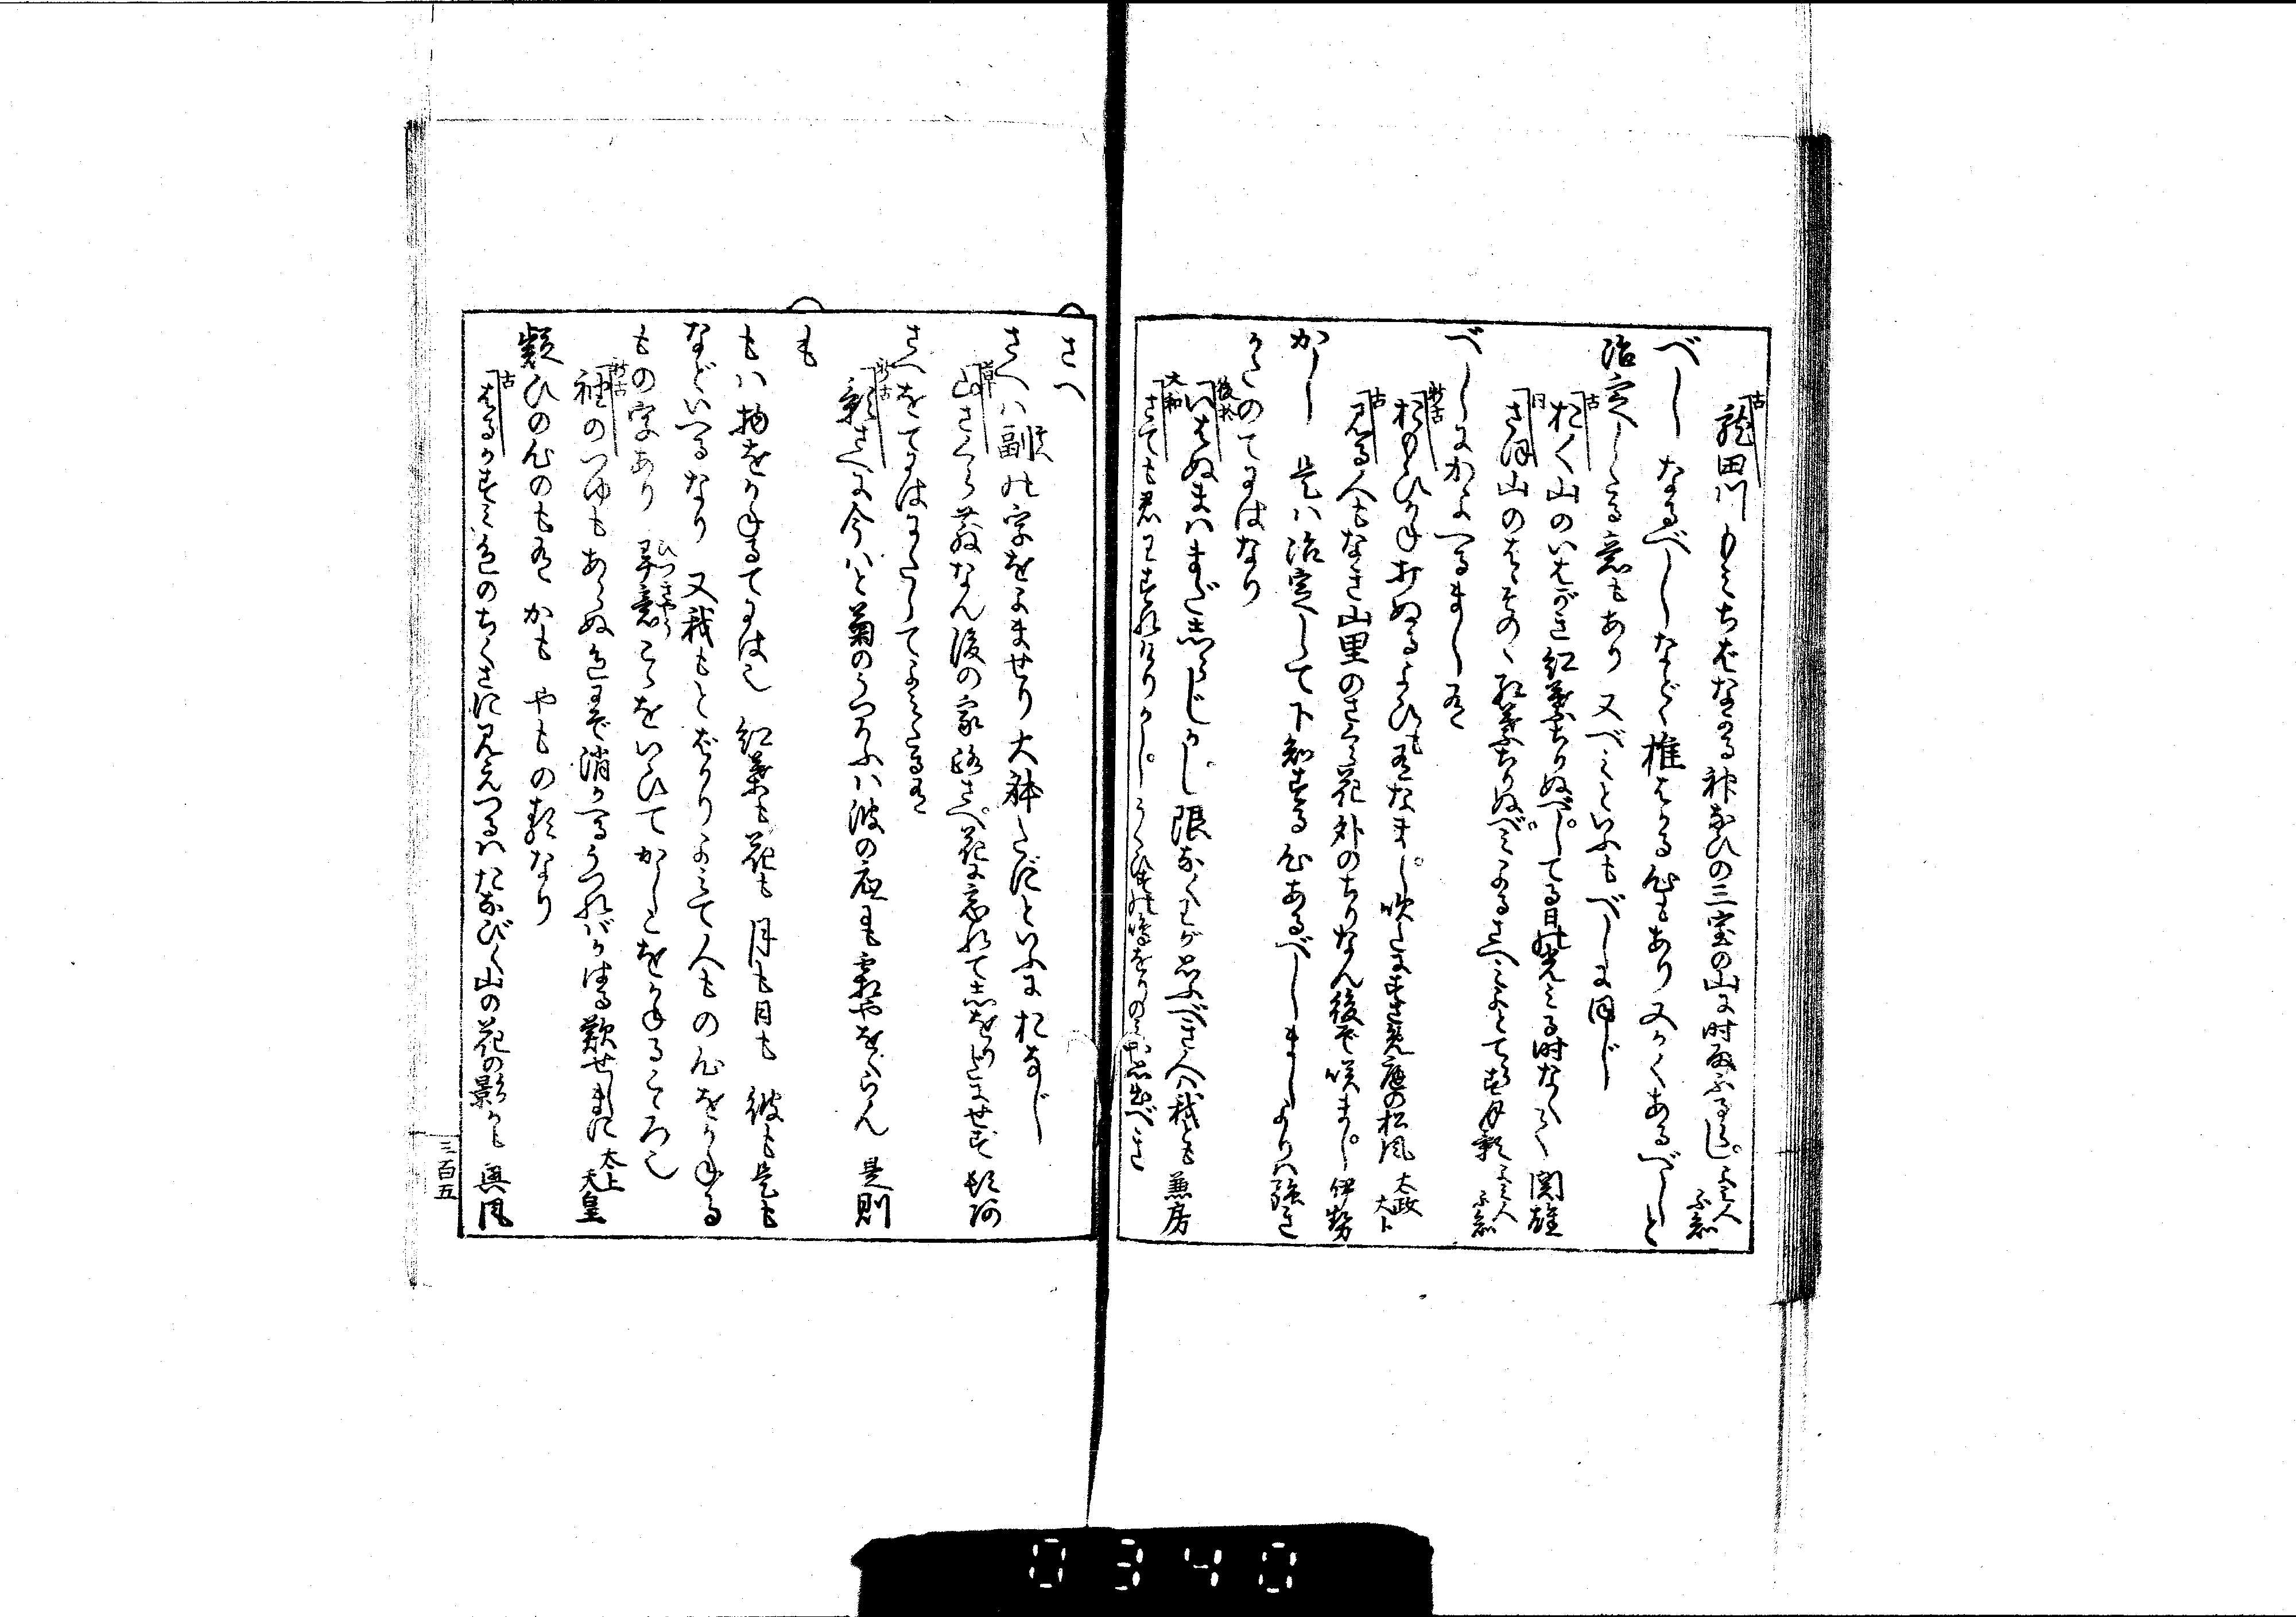 古 龍田川もみぢばながる神なびの三室の山に時雨ふるらし よみ人しらず
べし なるべしなどゝ推はかる心もあり又かくあるべしと
治定したる意もあり 又べみといふもべしに同じ
古 おく山のいはがき紅葉ちりぬべしてる日の光みる時なくて 関雄
同 さほ山のはゝその紅葉ちりぬべみよるさへみよとてらす月影 よみ人しらず
べしにかよへるまし有
新古
古 見る人もなき山里のさくら花外のちりなん後ぞ咲まし 伊勢
かし 是は治定して下知する心あるべしましよりは強き
かたのてにはなり
後拾 いはぬまはまだしらじかし限なくわが思ふべき人は我とも 兼房
大和
さへ
さへは副の字をよませり大躰だにといふにおなじ
草 山さくら散なん後の家路さへ花に忘れてしをりだにせず 頓阿
さへをてにはにたしてよみたる有
新古 影さへに今はと菊のうつろふは波の底にも霜やをくらん 是則
も
もは物をかねるてには也 紅葉も花も 月も日も 彼も是も
などいへるなり 又我もとばかりよみて人もの心をかねる
もの字あり
新古 袖のつゆもあらぬ色にぞ消かへるうつればかはる歎せしまに 太上天皇
類ひの心のも有 かも やもの類なり
古 はるがすみ色のちくさに見えつるはたなびく山の花の影かも 興風
三百五
0340